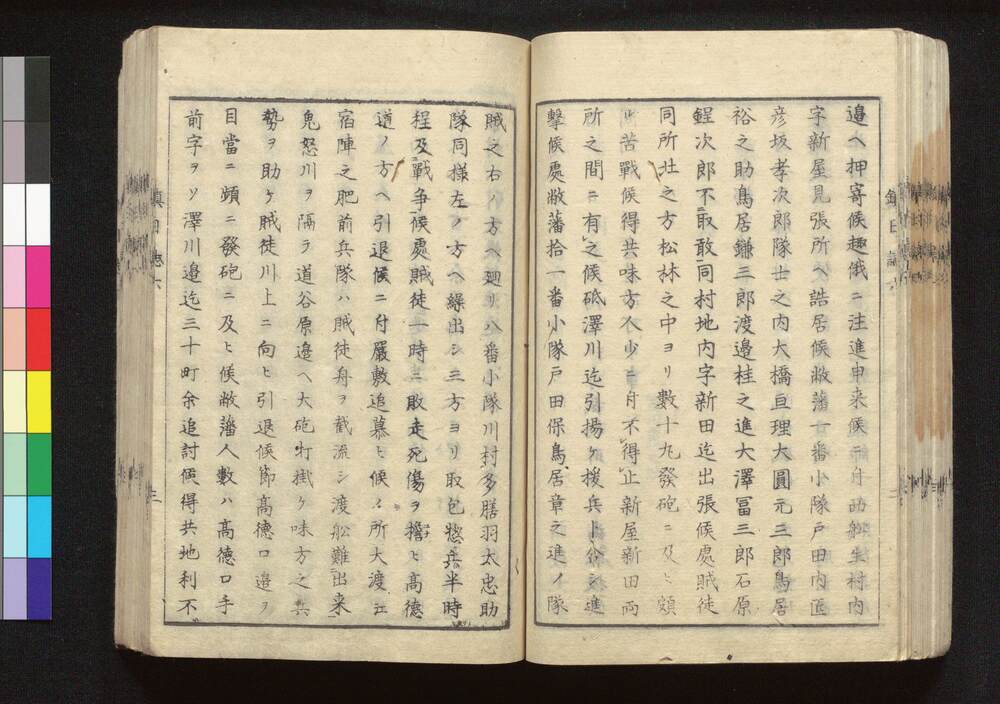 邉ヘ押寄候趣俄ニ注進申来候ニ付舩生村内
字新屋見張所ヘ詰居候敝藩十番小隊戸田内匠
彦坂孝次郎隊士之内大橋亘理大圓元三郎鳥居
裕之助鳥居鎌三郎渡邉桂之進大澤冨三郎石原
鍟次郎不取敢同村地内字新田迄出張候處賊徒
同所辻之方松林之中ヨリ數十丸發砲ニ及ヒ頗
ル苦戰候得共味方不少ニ付不得止新屋新田両
所之間ニ有之候砥澤川迄引揚ケ援兵ト合シ進
撃候處敝藩拾一番小隊戸田保鳥居章之進ノ隊
賊之右ノ方ヘ廻リ八番小隊川村多膳羽太忠助
隊同様左ノ方ヘ繰出シ三方ヨリ取包憗兵半時
程及戰争候處賊徒一時ニ敗走死傷ヲ擔ヒ高德
道ノ方ヘ引退候ニ付嚴敷追慕ヒ候ノ所大渡江
宿陣之肥前兵隊ハ賊徒舟ヲ截流シ渡舩難出来
鬼怒川ヲ隔ラ道谷原邉ヘ大砲打掛ケ味方之兵
勢ヲ助ケ賊徒川上ニ向ヒ引退候節高德口邉ヲ
目當ニ頻ニ發砲ニ及ヒ候敝藩人數ハ高德口手
前字ヲソ澤川邉迄三十町余追討候得共地利不